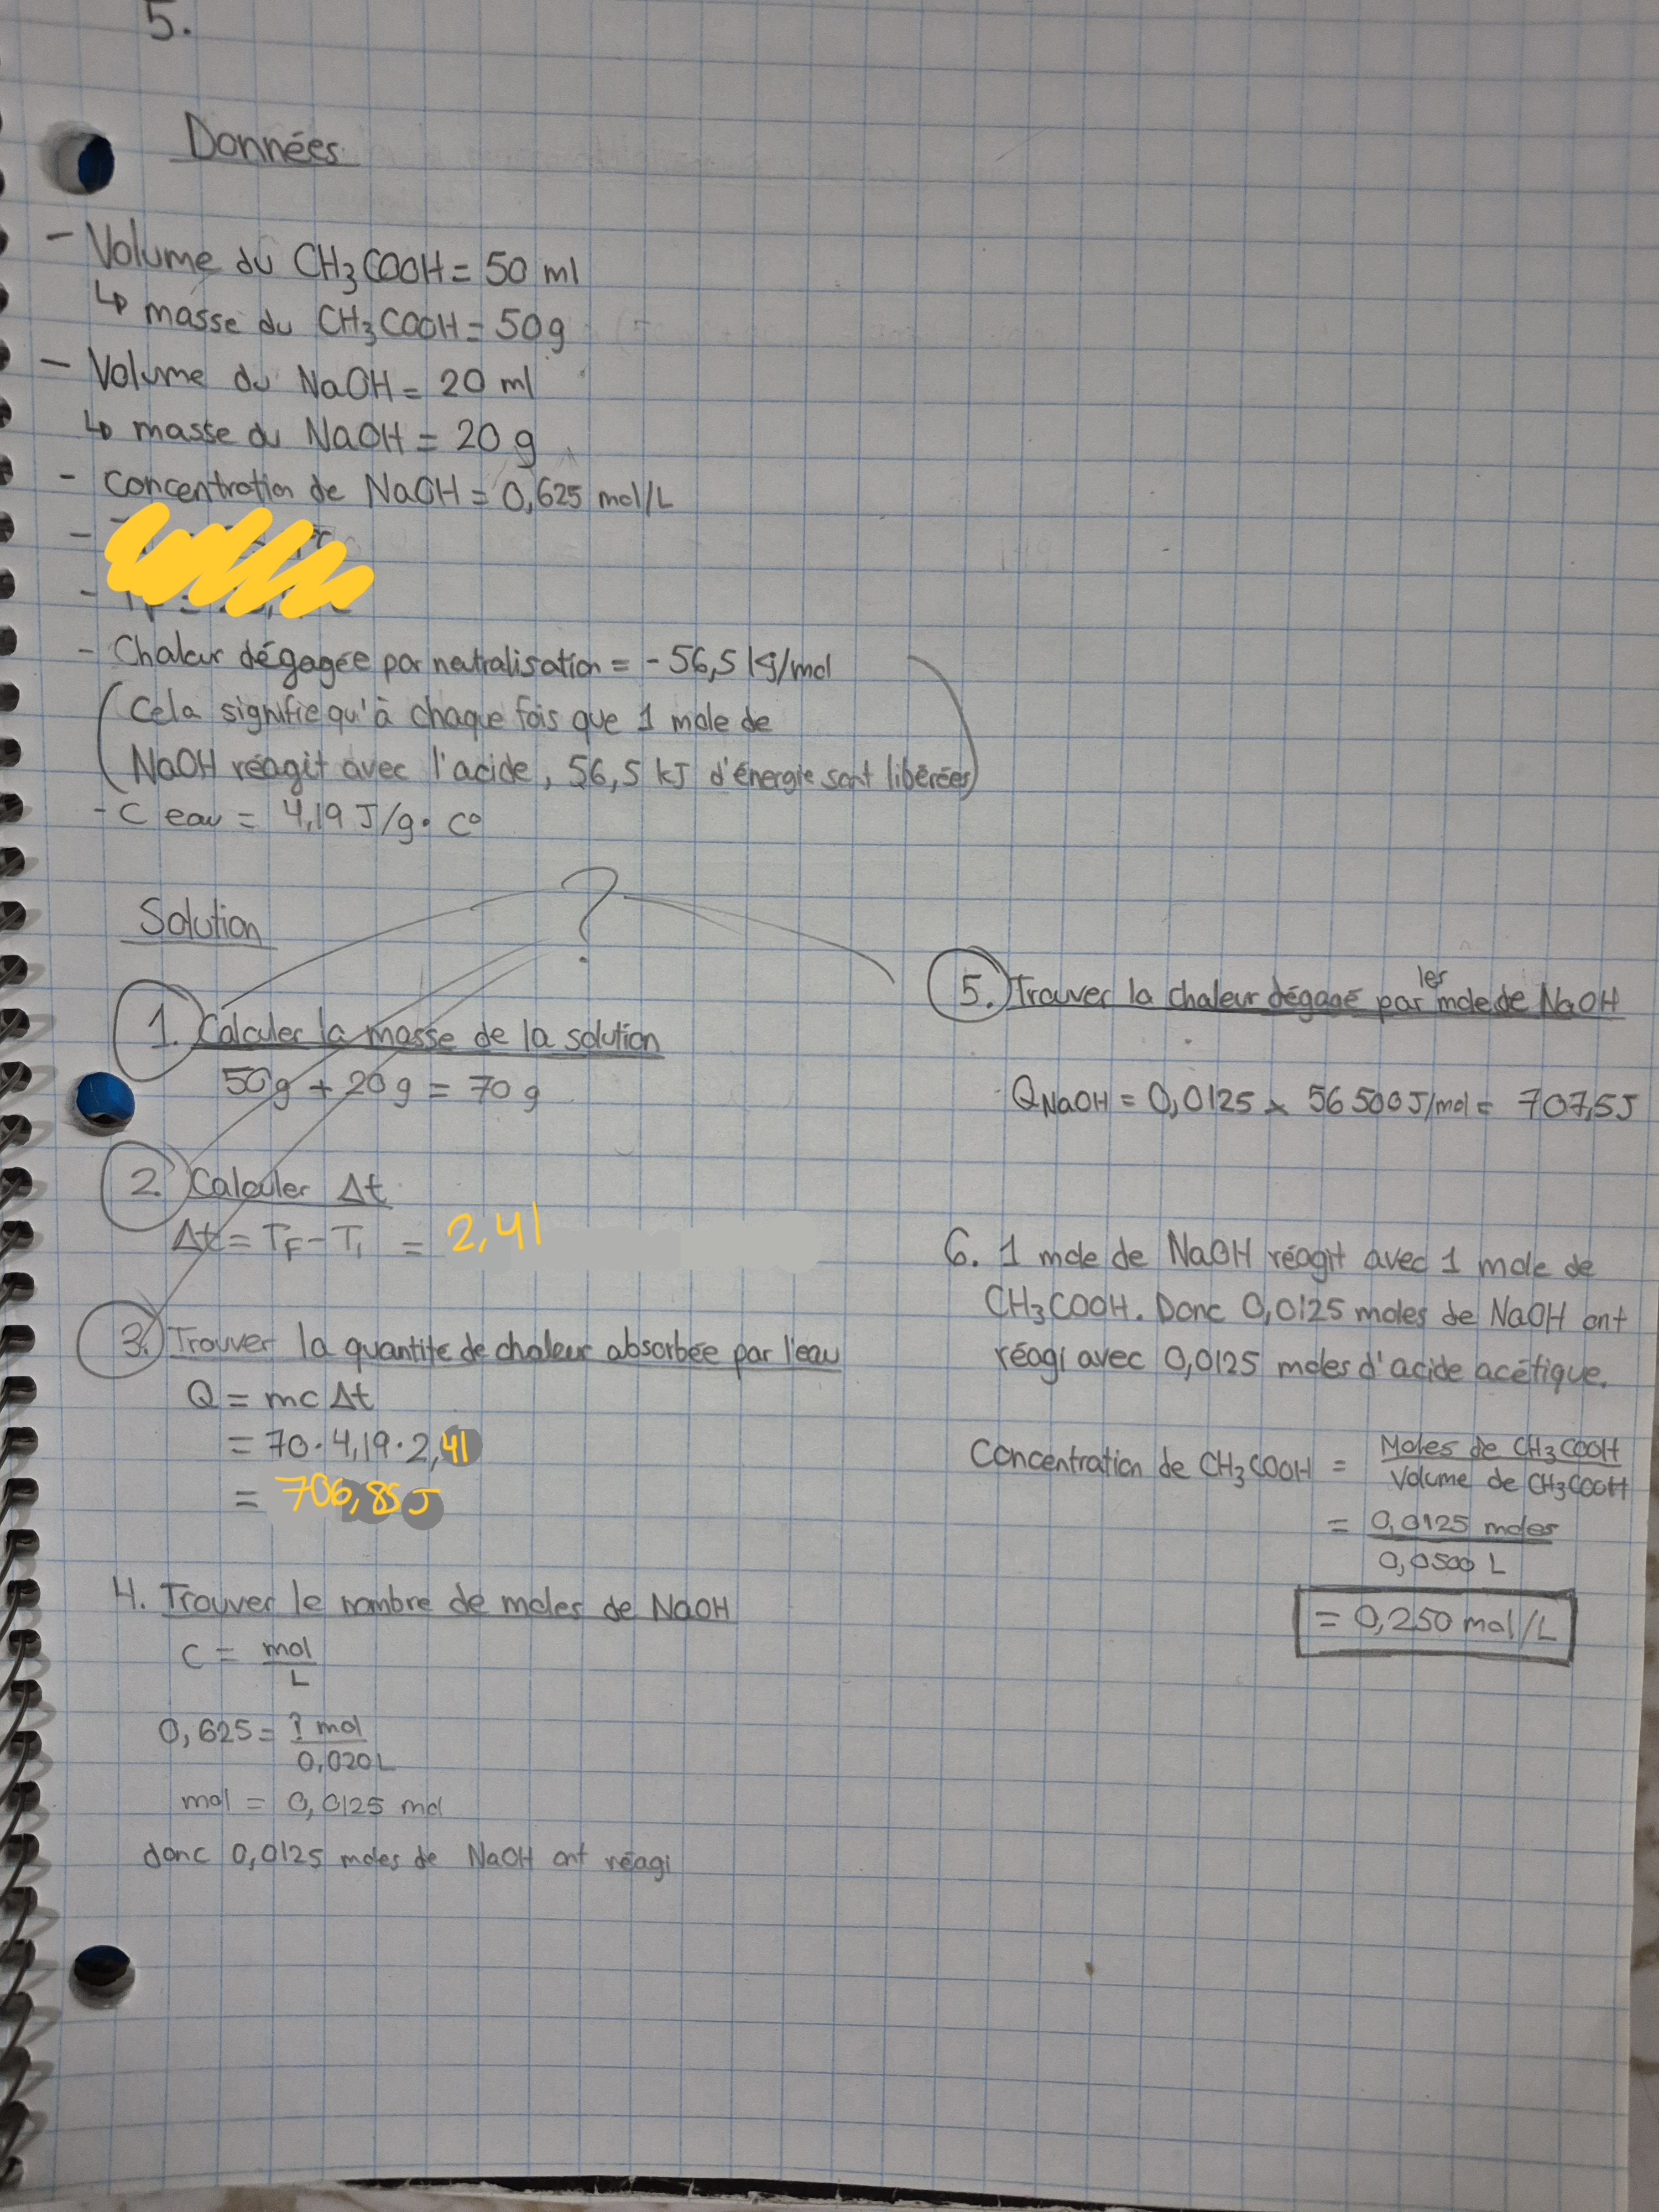 5.
Données
- Volume du CH₃COOH = 50 ml
↳ masse du CH₃COOH = 50g
- Volume du NaOH = 20 ml
↳ masse du NaOH = 20 g
- Concentration de NaOH = 0,625 mol/L
-
-
- Chaleur dégagée par neutralisation = - 56,5 kJ/mol
(Cela signifie qu'à chaque fois que 1 mole de
NaOH réagit avec l'acide, 56,5 kJ d'énergie sont libérées)
- C eau = 4,19 J/g • C°
?
Solution
1. Calculer la masse de la solution
50g + 20g = 70g
2. Calculer Δt
Δt = TF - Ti = 2,41
3. Trouver la quantité de chaleur absorbée par l'eau
Q = mcΔt
= 70 · 4,19 · 2,41
= 706,85 J
4. Trouver le nombre de moles de NaOH
C = mol/L
0,625 = ? mol/0,020L
mol = 0,0125 mol
donc 0,0125 moles de NaOH ont réagi
5. Trouver la chaleur dégagé par les mole de NaOH
QNaOH = 0,0125 x 56 500 J/mol = 707,5J
6. 1 mole de NaOH réagit avec 1 mole de
CH₃COOH. Donc 0,0125 moles de NaOH ont
réagi avec 0,0125 moles d'acide acétique.
Concentration de CH₃COOH = Moles de CH₃COOH/Volume de CH₃COOH
= 0,0125 moles/0,0500 L
= 0,250 mol/L